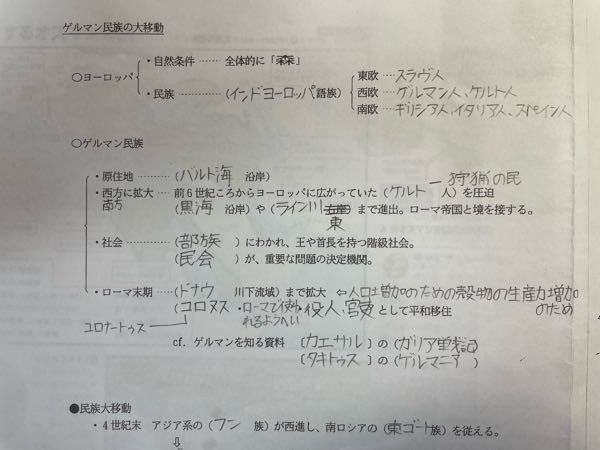 ゲルマン民族の大移動
・自然条件 …… 全体的に「森」
○ヨーロッパ
・民族 ………… (インドヨーロッパ語族)
東欧 … スラヴ人
西欧 … ゲルマン人、ケルト人
南欧 … ギリシア人、イタリア人、スペイン人
○ゲルマン民族
・原住地 ………… (バルト海 沿岸)
狩猟の民
・西方に拡大 …… 前6世紀ころからヨーロッパに広がっていた (ケルト 人) を圧迫
南方 (黒海 沿岸) や (ライン川 右岸) まで進出。ローマ帝国と境を接する。
東
・社会 ………… (部族 ) にわかれ、王や首長を持つ階級社会。
(民会 ) が、重要な問題の決定機関。
・ローマ末期 …… (ドナウ 川下流域) まで拡大 ⇐人口増加のための穀物の生産力増加のため
(コロヌス ・ローマで使われるようへい・役人、官吏) として平和移住
コロナートゥス
cf. ゲルマンを知る資料 〔カエサル〕の〔ガリア戦記〕
〔タキトゥス〕の〔ゲルマニア〕
●民族大移動
・4世紀末 アジア系の (フン 族) が西進し、南ロシアの (東ゴート族) を従える。
⇩